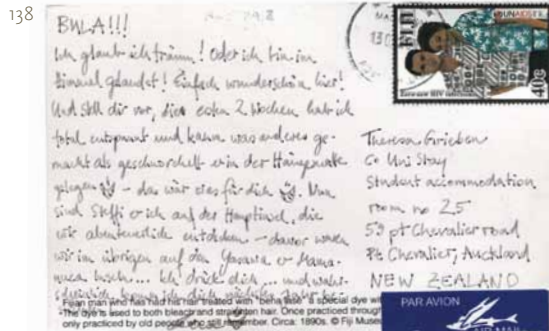 138
BULA!!!
Ich glaub ich träum! Oder ich bin im
Himmel gelandet! Einfach wunderschön hier!
Und stell dir vor, die ersten 2 Wochen hab ich
total entspannt und kaum was anderes ge-
macht als geschnorchelt in der Hängematte
gelegen – das wär was für dich. Nun
sind Steffi & ich auf der Hauptinsel, die
wir abenteuerlich entdecken – davor waren
wir im übrigen auf den Yasawa & Mama-
nuca Inseln... Ich drück dich... und
Fijian man who has had his hair treated with a special dye
The dye is used to both bleach and straighten hair. Once practiced
only practiced by old people who still remember. Circa: 1890s. © Fiji
FIJI
UNAIDS
40c
Theresa Grieben
c/o Uni Stay
Student accommodation
room no 25
59 pt Chevalier road
Pt Chevalier, Auckland
NEW ZEALAND
PAR AVION
AIR MAIL